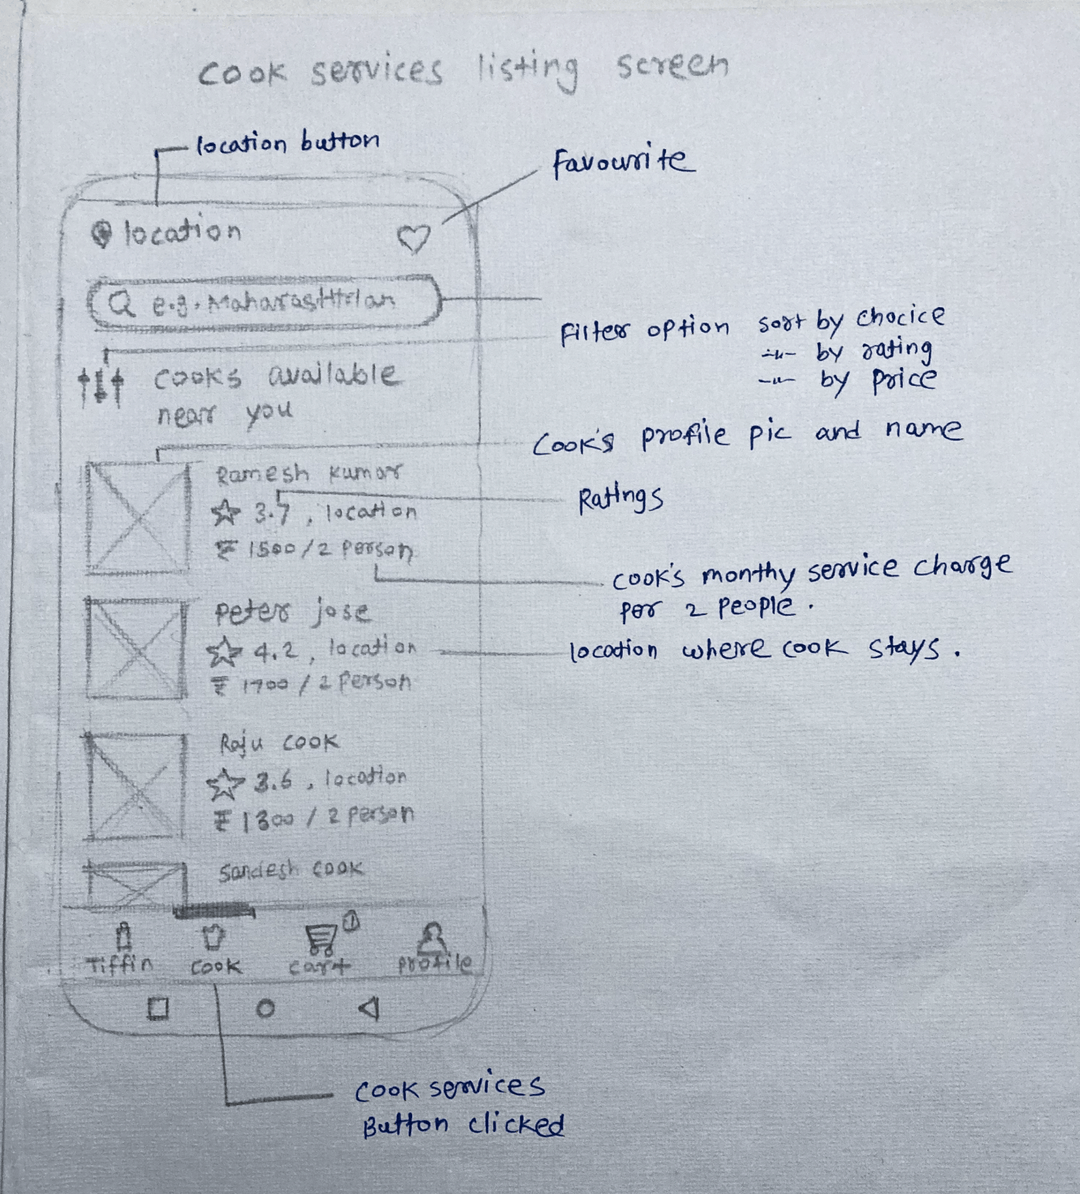 cook services listing screen
location button
Favourite
location
e.g. Maharashtrian
Filter option sort by chocice
-"- by rating
-"- by price
cooks available
near you
Cook's profile pic and name
Ramesh kumar
Ratings
3.7, location
₹ 1500/2 person
cook's monthy service charge
for 2 people.
Peter jose
4.2, location
location where cook stays.
₹ 1700 / 2 person
Raju cook
3.6, location
₹ 1300 / 2 person
Sandesh cook
1
Tiffin cook cart profile
cook services
Button clicked